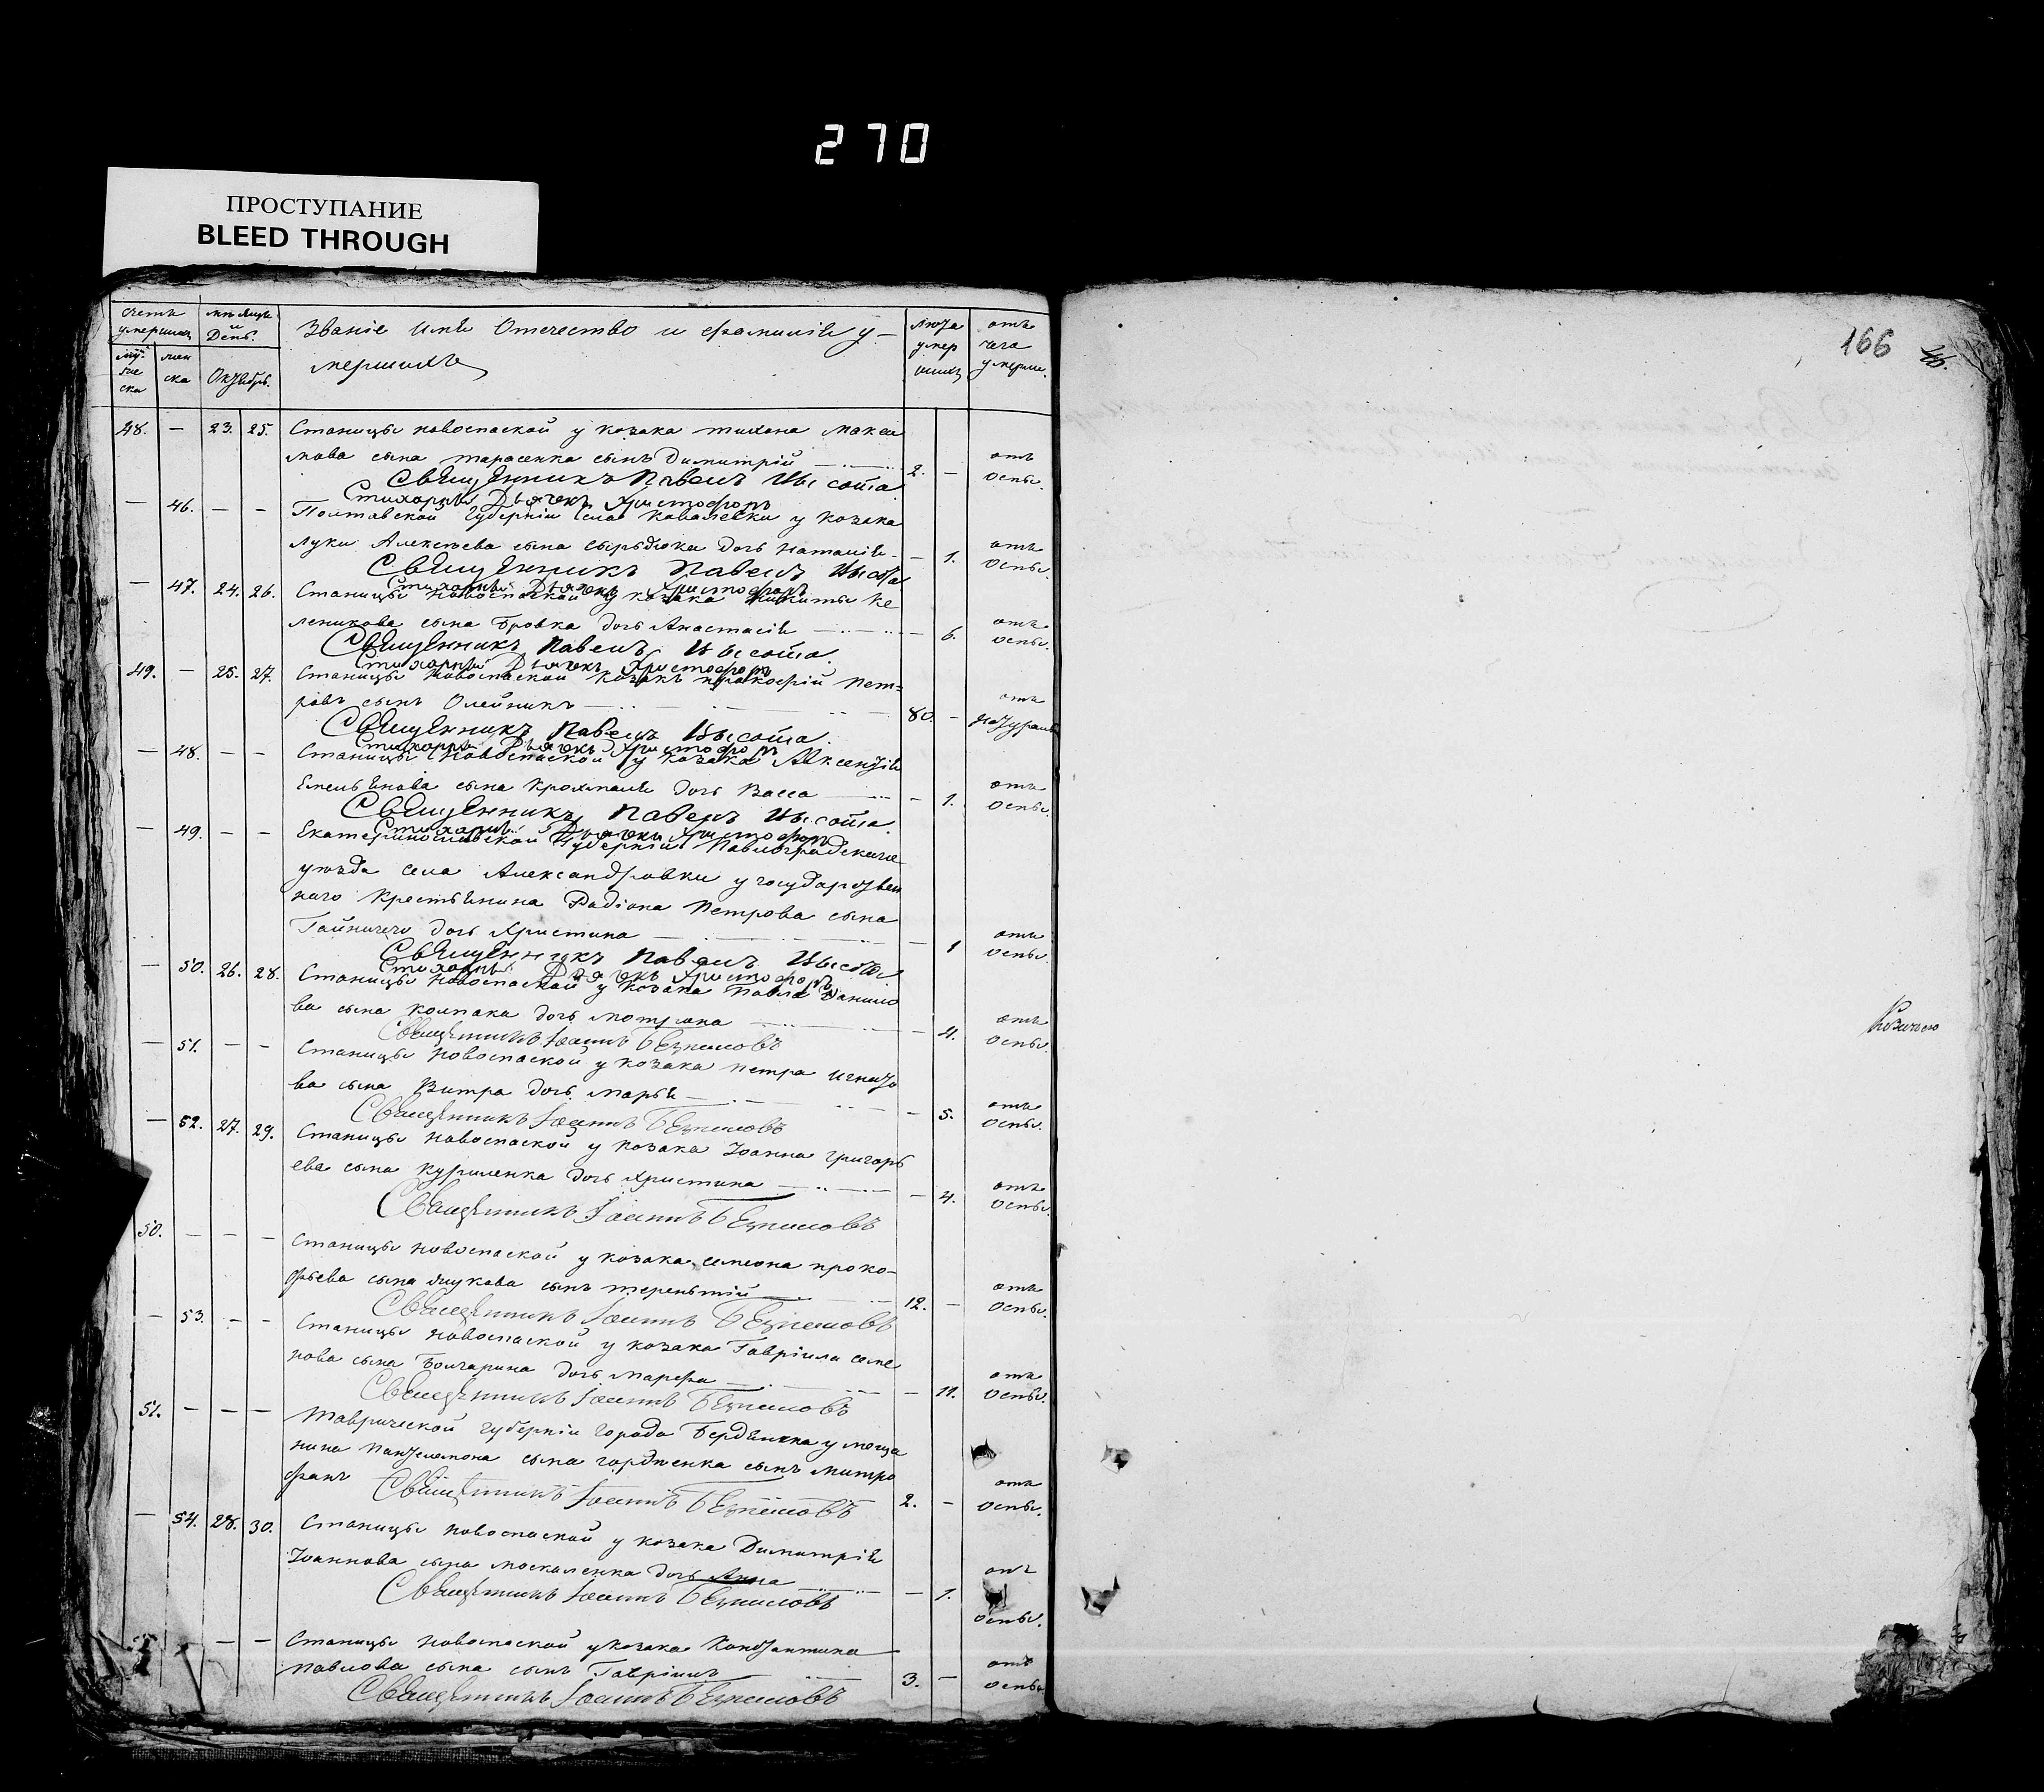 270
ПРОСТУПАНИЕ
BLEED THROUGH
166
Счетъ умершихъ
муже ска
жен ска
мѣсяцъ и День.
Октябрь.
Званіе имя Отечество и фамилія у-
мершихъ
Лѣта умер шихъ
отъ чего умерли.
48. — 23. 25. Станицы новоспаской у козака тихона макси
мова сына тарасенка сынъ Димитрій 2. — отъ оспы.
Священникъ Павелъ
Стихарный Дьячекъ Христофоръ
— 46. — — Полтавской губерніи села Ковалевки у козака
Луки Алексѣева сына дочь наталія — 1. отъ оспы.
Священникъ Павелъ
Стихарный Дьячекъ Христофоръ
— 47. 24. 26. Станицы новоспаской у козака никиты
сына Бровка дочь Анастасія — 6. отъ оспы.
Священникъ Павелъ
Стихарный Дьячекъ Христофоръ
49. — 25. 27. Станицы новоспаской козакъ прокофій пет=
ровъ сынъ Олейникъ 80. — отъ натуральн
Священникъ Павелъ
Стихарный Дьячекъ Христофоръ
— 48. — — Станицы новоспаской у козака Авксентія
Емельянова сына крохмаля дочь Васса — 1. отъ оспы.
Священникъ Павелъ
Стихарный Дьячекъ Христофоръ
— 49. — — Екатеринославской губерніи Павлоградскаго
уезда села Александровки у государствен
наго крестьянина Радіона петрова сына
дочь Христина — 1 отъ оспы.
Священникъ Павелъ
Стихарный Дьячекъ Христофоръ
— 50. 26. 28. Станицы новоспаской у козака Павла Данило
ва сына колпака дочь мотрона — 4. отъ оспы.
Священникъ Іоаннъ
— 51. — — Станицы новоспаской у козака петра игнато
ва сына Витра дочь марья — 5. отъ оспы.
Священникъ Іоаннъ
— 52. 27. 29. Станицы новоспаской у козака Іоанна григорь
ева сына куриленка дочь Христина — 4. отъ оспы.
Священникъ Іоаннъ
50. — — — Станицы новоспаской у козака семіона проко-
фьева сына сынъ терентій 12. — отъ оспы.
Священникъ Іоаннъ
— 53. — — Станицы новоспаской у козака Гавріила семе
нова сына Болгарина дочь марфа — 11. отъ оспы.
Священникъ Іоаннъ
51. — — — таврической губерніи города Бердянска у меща
нина пантелемона сына гордѣенка сынъ митро
фанъ 2. — отъ оспы.
Священникъ Іоаннъ
— 54. 28. 30. Станицы новоспаской у козака Димитрія
Іоаннова сына москаленка дочь Анна — 1. отъ оспы.
Священникъ Іоаннъ
— — Станицы новоспаской у козака Константина
павлова сына сынъ Гавріилъ 3. — отъ оспы
Священникъ Іоаннъ